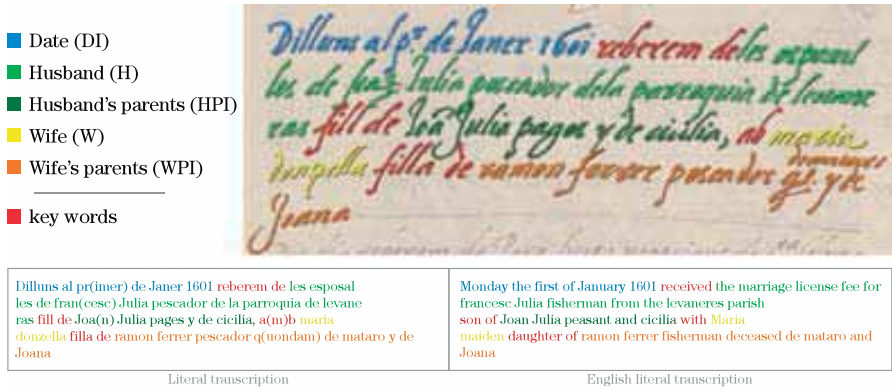 Date (DI)
Husband (H)
Husband's parents (HPI)
Wife (W)
Wife's parents (WPI)
key words
Dilluns al pr. de Janer 1601 reberem de les esposal
les de Julia pescador dela parroquia de levane
ras fill de Joã Julia pages y de cicilia, ab maria
donzella filla de ramon ferrer pescador q°. de mataro y de
Joana
Dilluns al pr(imer) de Janer 1601 reberem de les esposal
les de fran(cesc) Julia pescador de la parroquia de levane
ras fill de Joa(n) Julia pages y de cicilia, a(m)b maria
donzella filla de ramon ferrer pescador q(uondam) de mataro y de
Joana
Monday the first of January 1601 received the marriage license fee for
francesc Julia fisherman from the levaneres parish
son of Joan Julia peasant and cicilia with Maria
maiden daughter of ramon ferrer fisherman deceased de mataro and
Joana
Literal transcription
English literal transcription